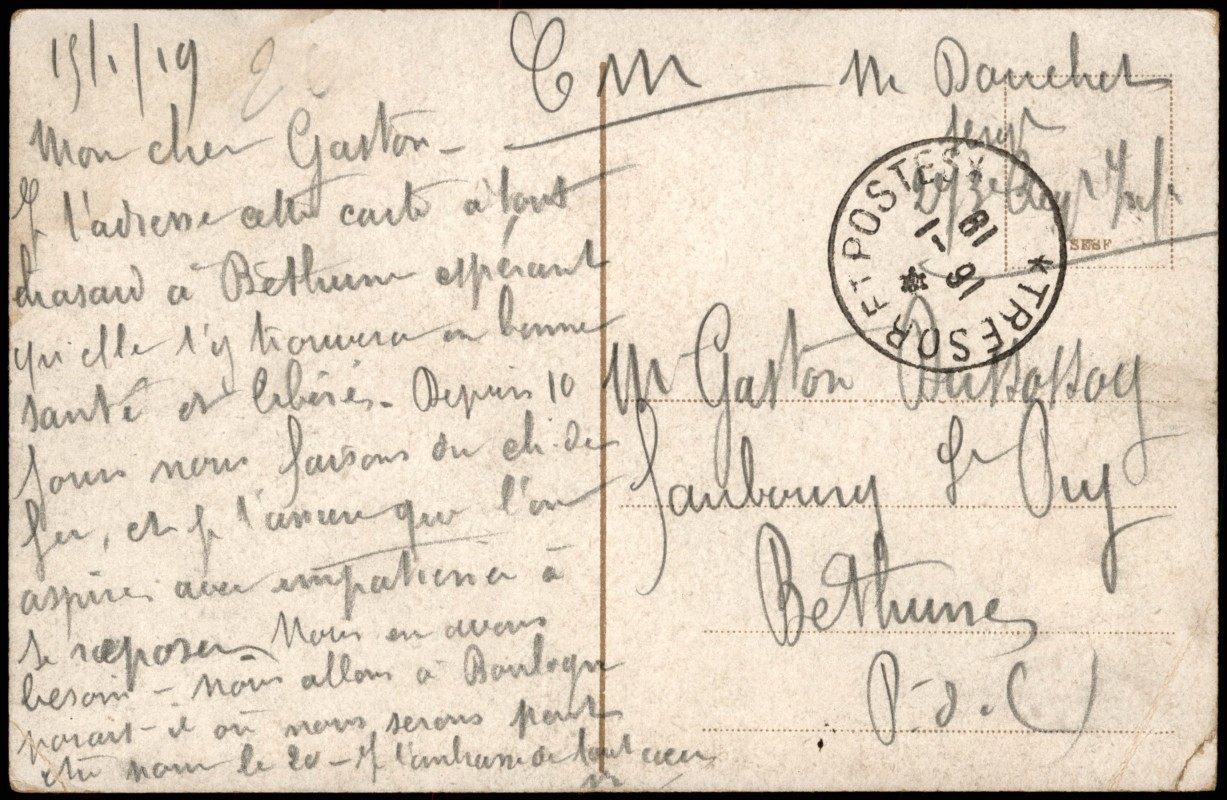 15/1/19
C M
M Douchet
sergt
273e Regt Inf.
TRÉSOR ET POSTES
16
-1
19
SESF
Mon cher Gaston -
Je t'adresse cette carte à tout
hasard à Béthune espérant
qu'elle t'y trouvera en bonne
santé et libéré - Depuis 10
jours nous faisons du ch. de
fer, et je t'assure que l'on
aspire avec impatience à
se reposer Nous en avons
besoin - Nous allons à Boulogne
parait-il où nous serons peut
être pour le 20 - Je t'embrasse de tout cœur
Mr Gaston
faubourg St Pry
Béthune
P-d-C